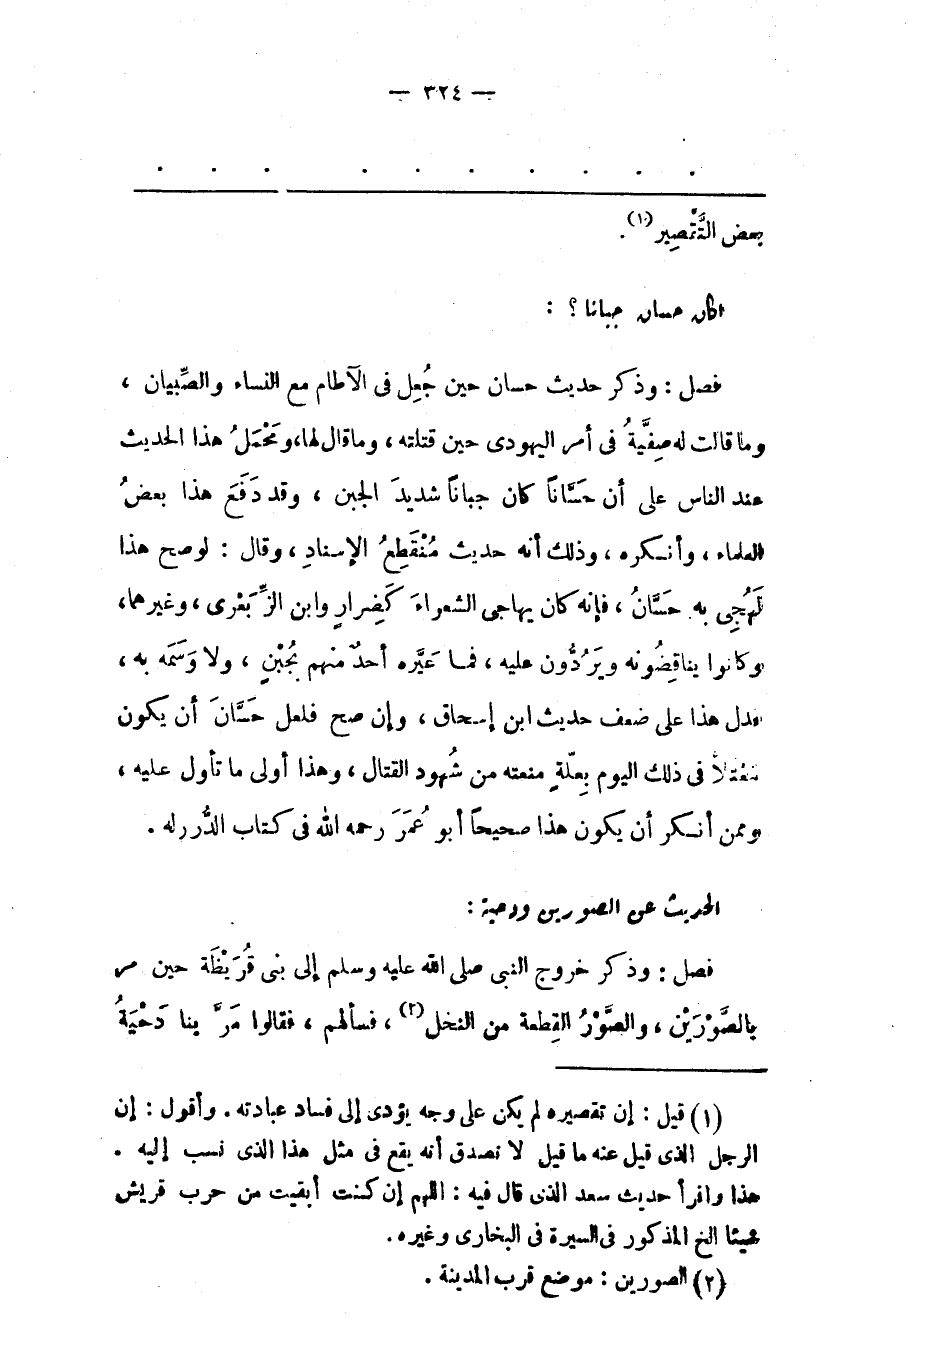 — ٣٢٤ —
بعض التَّقْصِير (١) .
أكان حسان جبانا ؟ :
فصل : وذكر حديث حسان حين جُعِل فى الآطام مع النساء والصِّبيان ،
وما قالت له صفِيَّةُ فى أمر اليهودى حين قتلته ، وما قال لها ، ومَحْمَلُ هذا الحديث
عند الناس على أن حَسَّاناً كان جباناً شديدَ الجبن ، وقد دَفَعَ هذا بعضُ
العلماء ، وأنكره ، وذلك أنه حديث مُنْقَطِعُ الإسنادِ ، وقال : لو صح هذا
لَهُجِى به حَسَّانُ ، فإنه كان يهاجى الشعراءَ كَضِرارٍ وابن الزِّبَعْرى ، وغيرهما ،
وكانوا يناقِضُونه ويَرُدُّون عليه ، فما عَيَّره أحدٌ منهم بجُبْنٍ ، ولا وَسَمَه به ،
فدل هذا على ضعف حديث ابن إسحاق ، وإن صح فلعل حَسَّانَ أن يكون
مُعْتَلاًّ فى ذلك اليوم بِعلّةٍ منعته من شُهود القتال ، وهذا أولى ما تأول عليه ،
وممن أنكر أن يكون هذا صحيحاً أبو عُمَرَ رحمه الله فى كتاب الدُّرر له .
الحديث عن الصورين ودحية :
فصل : وذكر خروج النبى صلى الله عليه وسلم إلى بنى قُرَيْظَة حين مر
بالصَّوْرَيْن ، والصَّوْرُ القِطعة من النخل (٢) ، فسألهم ، فقالوا مَرَّ بنا دَحْيَةُ
(١) قيل : إن تقصيره لم يكن على وجه يؤدى إلى فساد عبادته . وأقول : إن
الرجل الذى قيل عنه ما قيل لا نصدق أنه يقع فى مثل هذا الذى نسب إليه .
هذا واقرأ حديث سعد الذى قال فيه : اللهم إن كنت أبقيت من حرب قريش
شيئا الخ المذكور فى السيرة فى البخارى وغيره .
(٢) الصورين : موضع قرب المدينة .